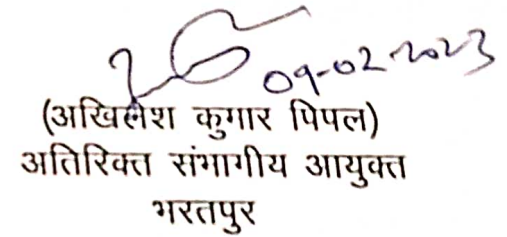 09-02-2023
(अखिलेश कुमार पिपल)
अतिरिक्त संभागीय आयुक्त
भरतपुर